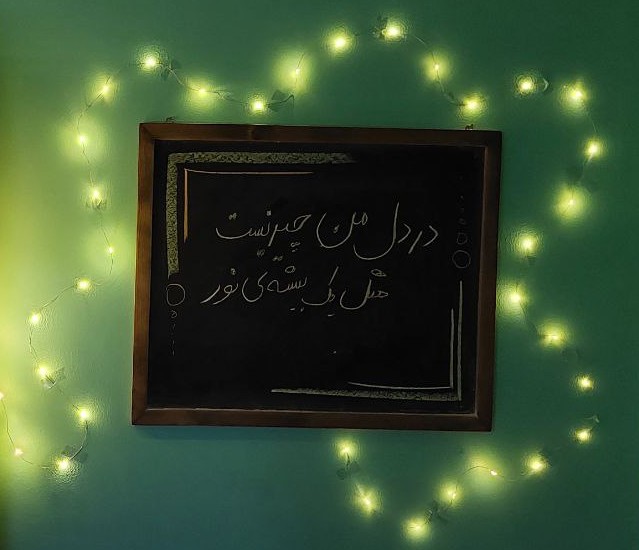 در دل من چیزیست
مثل یک بیشه‌ی نور